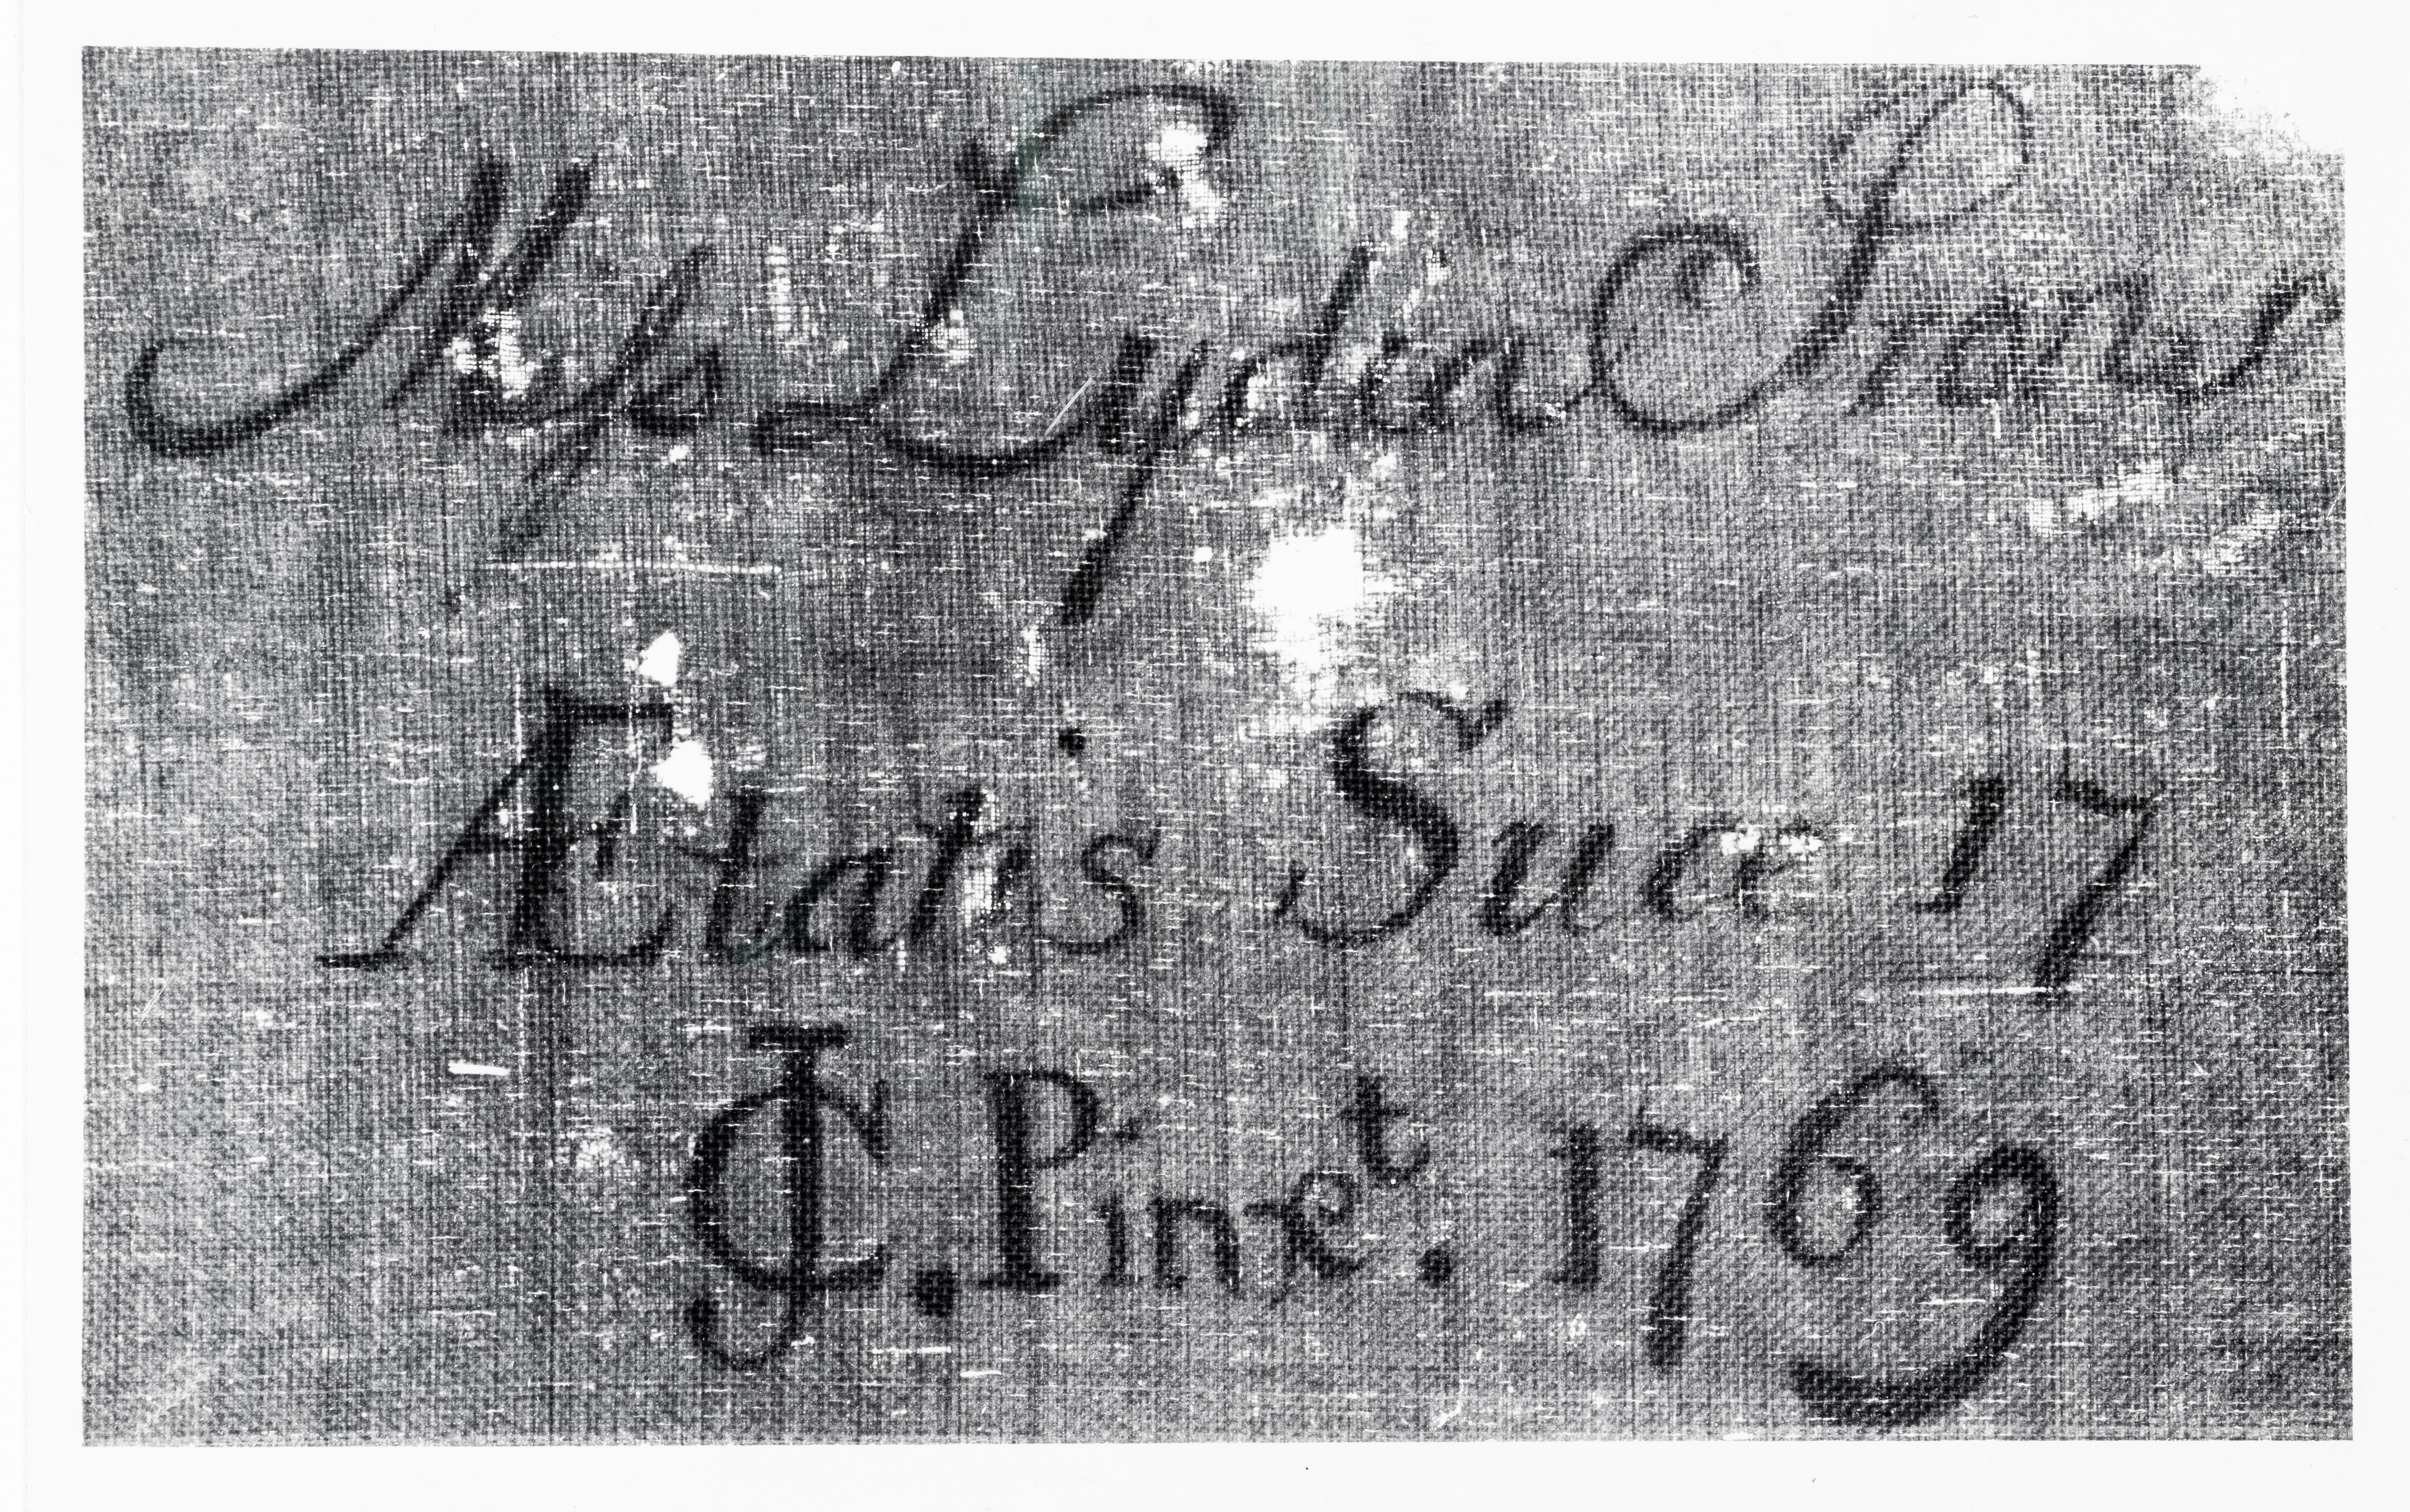 Miſs Lydia
Ætatis Suæ 17
JC. Pinxet. 1769